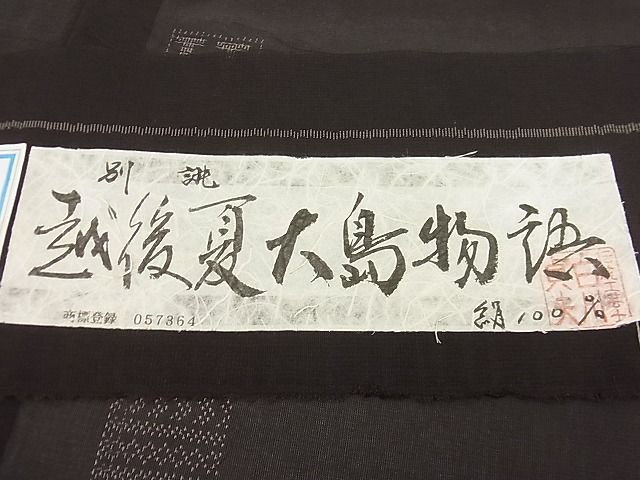 別誂
越後夏大島物語
商標登録 057364
絹100%